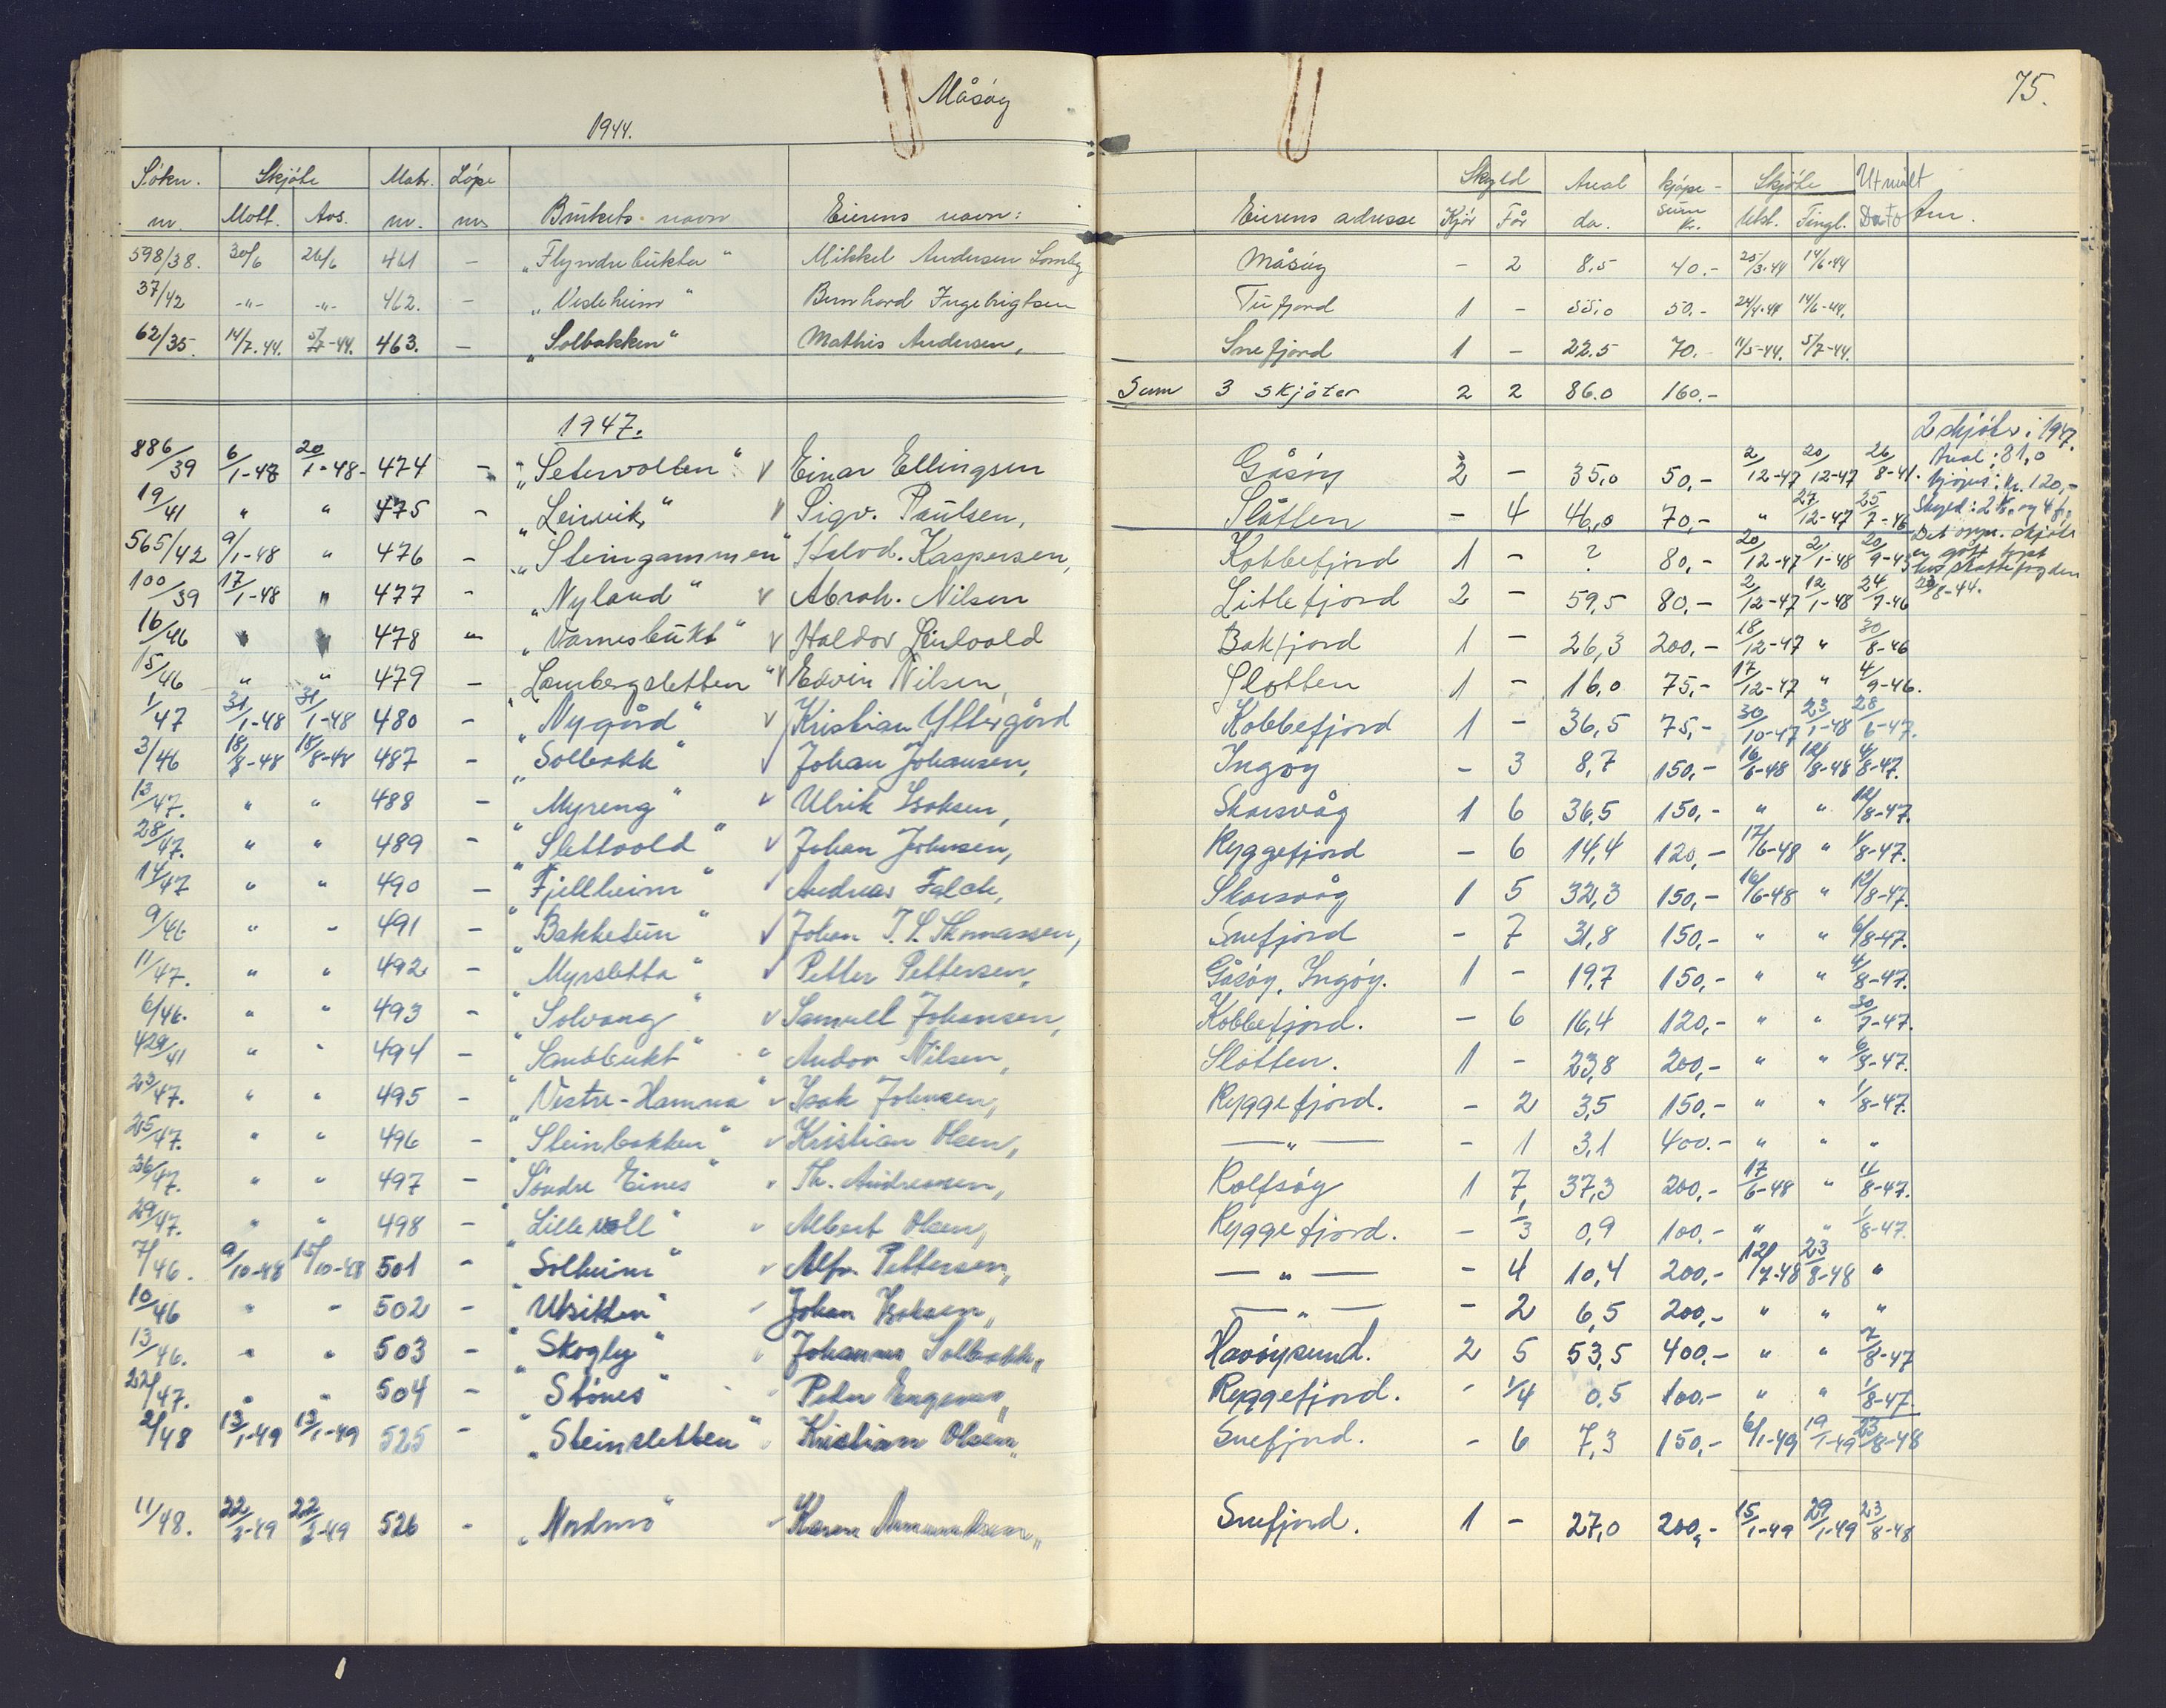 Måsøy
1944.
75.
Søkn. nr. | Skjøte Mott. | Avs. | Matr. nr. | Løpe nr. | Brukets navn | Eierens navn: | Eierens adresse | Skyld Kjør | Får | Areal da. | Kjøpe-sum kr. | Skjøte Utst. | Tingl. | Utmålt Dato | Anm.
598/38. | 30/6 | 26/6 | 461 | - | "Flyndrebukta" | Mikkel Andersen Lomby | Måsøy | - | 2 | 8,5 | 40.- | 25/3-44 | 14/6-44
37/42 | -"- | -"- | 462. | - | "Vesleheim" | Bernhard Ingebrigtsen | Tufjord | 1 | - | 55,0 | 50.- | 24/4-44 | 14/6-44.
62/35. | 14/7.44. | 5/7-44. | 463. | - | "Solbakken" | Mathis Andersen, | Snefjord | 1 | - | 22.5 | 70.- | 11/5-44. | 5/7-44.
Sum 3 skjøter | 2 | 2 | 86.0 | 160.-
1947.
2 skjøter i 1947.
Areal: 81,0
Kjøpes: kr. 120,-
Skyld: 2 k. og 4 f.
Det oppr. skjøte
er gått tapt
hos skattefogden
8-44.
886/39 | 6/1-48 | 20/1-48- | 474 | - | "Setervollen" v | Einar Ellingsen | Gåsøy | 2 | - | 35,0 | 50,- | 2/12-47 | 20/12-47 | 26/8-41.
19/41 | " | " | 475 | - | "Leirvik" v | Sigv. Paulsen, | Slåtten | - | 4 | 46,0 | 70,- | " | 27/12-47 | 25/7-46
565/42 | 9/1-48 | " | 476 | - | "Steingammen" | Halvd. Kaspersen, | Kobbefjord | 1 | - | ? | 80,- | 20/12-47 | 2/1-48 | 20/9-43
100/39 | 17/1-48 | " | 477 | - | "Nyland" v | Abrah. Nilsen | Litlefjord | 2 | - | 59,5 | 80,- | 2/12-47 | 12/1-48 | 24/7-46
16/46 | " | " | 478 | - | "Varnesbukt" v | Haldor Leirvold | Bakfjord | 1 | - | 26,3 | 200,- | 18/12-47 | " | 30/8-46
15/46 | " | " | 479 | - | "Lambergsletten" v | Edvin Nilsen, | Slotten | 1 | - | 16,0 | 75,- | 17/12-47 | " | 4/9-46.
1/47 | 31/1-48 | 31/1-48 | 480 | - | "Nygård" v | Kristian Yttergård | Kobbefjord | 1 | - | 36,5 | 75,- | 30/10-47 | 23/1-48 | 28/6-47.
3/46 | 18/8-48 | 18/8-48 | 487 | - | "Solbakk" v | Johan Johansen, | Ingøy | - | 3 | 8,7 | 150,- | 16/6-48 | 12/8-48 | 4/8-47.
13/47. | " | " | 488 | - | "Myreng" v | Ulrik Isaksen, | Skarsvåg | 1 | 6 | 36,5 | 150,- | " | " | 12/8-47.
28/47. | " | " | 489 | - | "Slettvold" v | Johan Johnsen, | Ryggefjord | - | 6 | 14,4 | 120,- | 17/6-48 | " | 1/8-47.
14/47 | " | " | 490 | - | "Fjellheim" v | Andreas Falck, | Skarsvåg | 1 | 5 | 32,3 | 150,- | 16/6-48 | " | 12/8-47.
9/46 | " | - | 491 | - | "Bakketun" v | Johan J. S. Thomassen, | Snefjord | - | 7 | 31,8 | 150,- | " | " | 6/8-47.
11/47. | " | " | 492 | - | "Myrsletta" v | Petter Pettersen, | Gåsøy, Ingøy. | 1 | - | 19,7 | 150,- | " | " | 4/8-47.
6/46. | " | " | 493 | - | "Solvang" v | Samuel Johansen, | Kobbefjord. | - | 6 | 16,4 | 120,- | " | " | 30/7-47.
429/41 | " | " | 494 | - | "Sandbukt" v | Andor Nilsen, | Slotten. | 1 | - | 23,8 | 200,- | " | " | 6/8-47.
23/47. | " | " | 495 | - | "Vestre-Hamna" v | Isak Johnsen, | Ryggefjord. | - | 2 | 3,5 | 150,- | " | " | 1/8-47.
25/47. | " | " | 496 | - | "Steinbakken" v | Kristian Olsen, | — " — | - | 1 | 3,1 | 400.- | " | " | "
36/47. | " | " | 497 | - | "Søndre Eines" v | Th. Andreassen, | Rolfsøy | 1 | 7, | 37,3 | 200,- | 17/6-48 | " | 11/8-47.
29/47. | " | " | 498 | - | "Lillevoll" v | Albert Olsen, | Ryggefjord. | - | 1/3 | 0,9 | 100.- | " | " | 1/8-47.
7/46. | 9/10-48 | 15/10-48 | 501 | - | "Solheim" v | Alfr. Pettersen, | — " — | - | 4 | 10,4 | 200,- | 12/7-48 | 23/8-48 | "
10/46 | " | - | 502 | - | "Utsikten" | Johan Isaksen, | — " — | - | 2 | 6,5 | 200,- | " | " | "
13/46. | " | " | 503 | - | "Skogly" v | Johannes Solbakk, | Havøysund. | 2 | 5 | 53,5 | 400,- | " | " | 7/8-47
22/47. | " | " | 504 | - | "Stønes" | Peder | Ryggefjord. | - | 1/4 | 0,5 | 100.- | " | " | 1/8-47.
2/48 | 13/1-49 | 13/1-49 | 525 | - | "Steinsletten" | Kristian Olsen, | Snefjord. | - | 6 | 7,3 | 150,- | 6/1-49 | 19/1-49 | 23/8-48
11/48. | 22/2-49 | 22/2-49 | 526 | - | "Nordmo" | Karen Amundsen, | Snefjord. | 1 | - | 27,0 | 200,- | 15/1-49 | 29/1-49 | 23/8-48